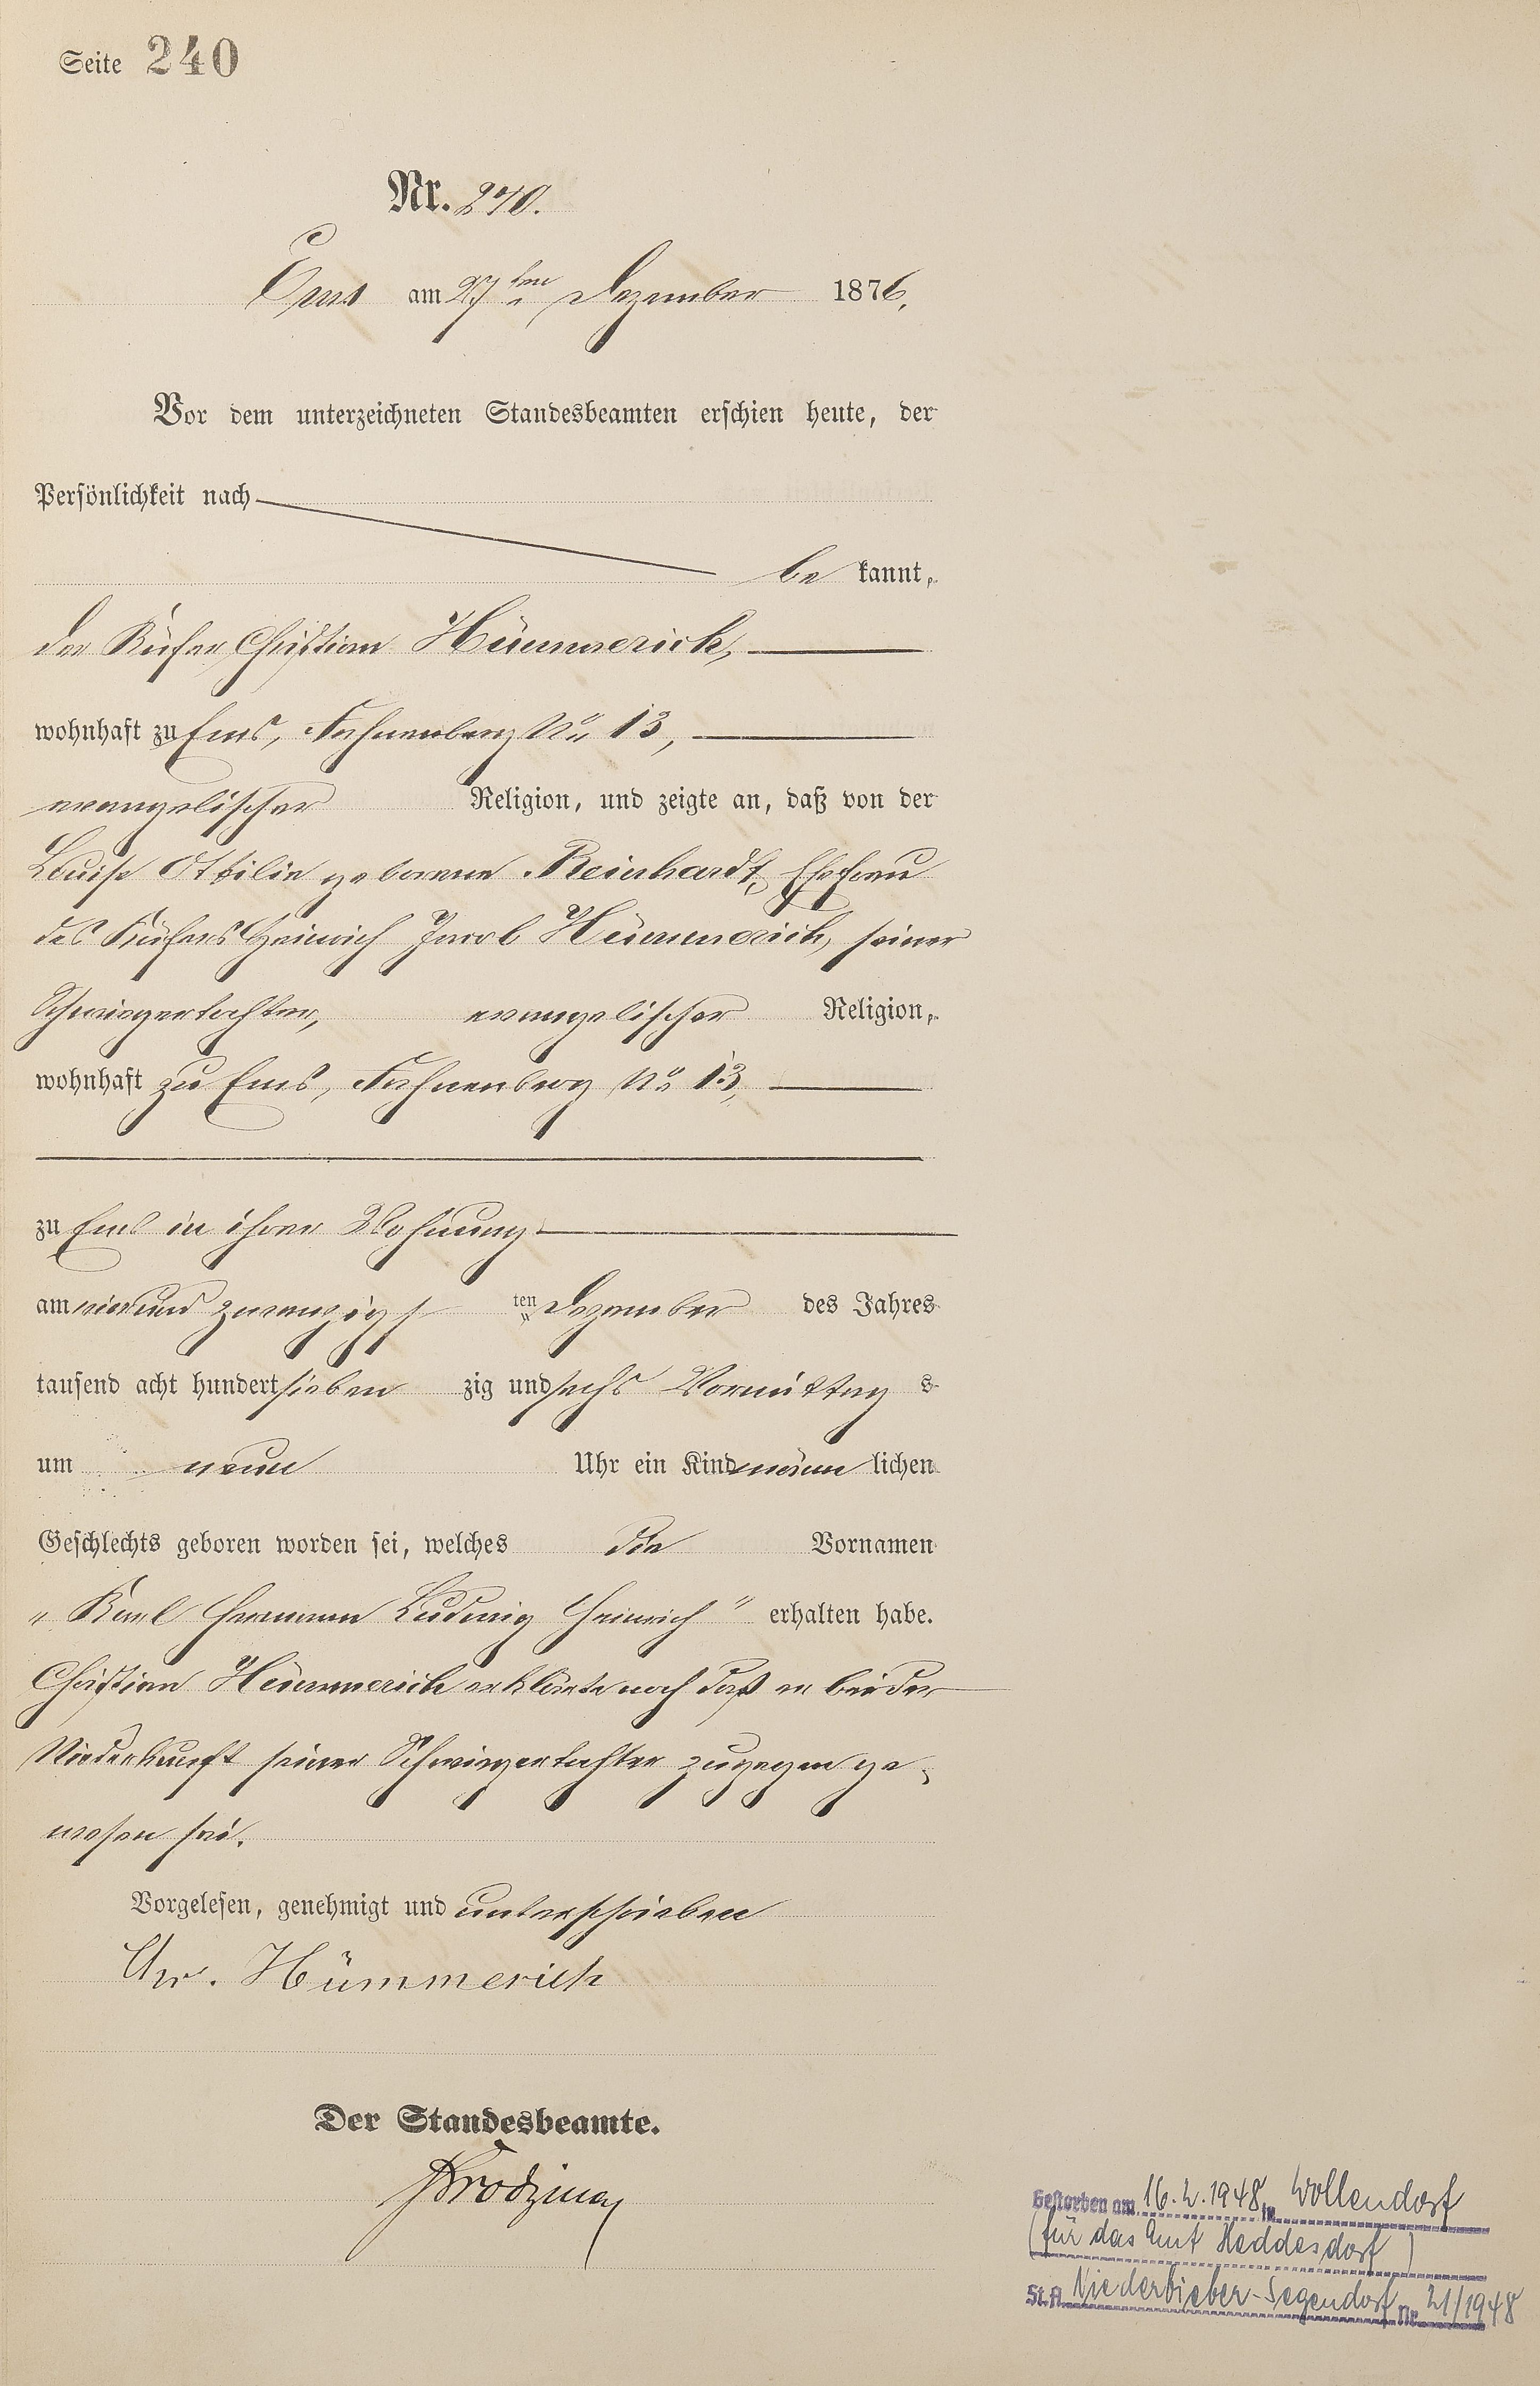 Seite 240
Nr. 240.
Ems am 27ten Dezember 1876.
Vor dem unterzeichneten Standesbeamten erschien heute, der
Persönlichkeit nach
be kannt,
der Küfer Christian Hümmerich,
wohnhaft zu Ems, Fahnenberg No 13,
evangelischer Religion, und zeigte an, daß von der
Louise Ottilie geborene Reinhardt, Ehefrau
des Küfers Heinrich Jacob Hümmerich, seiner
Schwiegertochter, evangelischer Religion,
wohnhaft zu Ems, Fahnenberg No 13,
zu Ems in ihrer Wohnung
am vierundzwanzigsten Dezember des Jahres
tausend acht hundert sieben zig und sechs Vormittag s
um neun Uhr ein Kind männ lichen
Geschlechts geboren worden sei, welches die Vornamen
„Karl Hermann Ludwig Heinrich" erhalten habe.
Christian Hümmerich erklärte noch daß er bei der
Niederkunft seiner Schwiegertochter zugegen ge-
wesen sei.
Vorgelesen, genehmigt und unterschrieben
Chr. Hümmerich
Der Standesbeamte.
Gestorben am 16.2.1948 in Wollendorf
(für das Amt Heddesdorf)
St.A. Niederbieber-Segendorf Nr. 21/1948